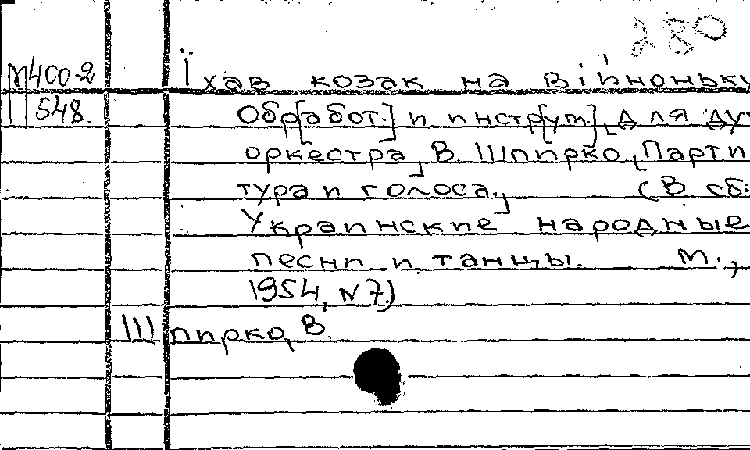 280
М400-2 Їхав козак на війноньку
548. Обр[абот.] и инстр[ум.] для ду-
оркестра В. Шпирко. [Парти-
тура и голоса.] (В сб:
Украинские народные
песни и танцы. М.,
1954, N 7)
Шпирко, В.